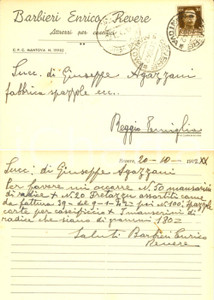 Barbieri Enrico - Revere
Attrezzi per caseifici
C.P.E. MANTOVA N.
Succ. di Giuseppe Agazzani
fabbrica spazzole ecc.
Reggio Emilia
Revere, 20-10-1942 XX
Succ: di Giuseppe Agazzani
Per favore mi occorre N. 50
di radice + N. 20 assortiti come
da fattura 39 del 9-1-42 + poi N. 100
carte per caseificio +
radice che siano grammi 180 =
Saluti Barbieri Enrico
Revere